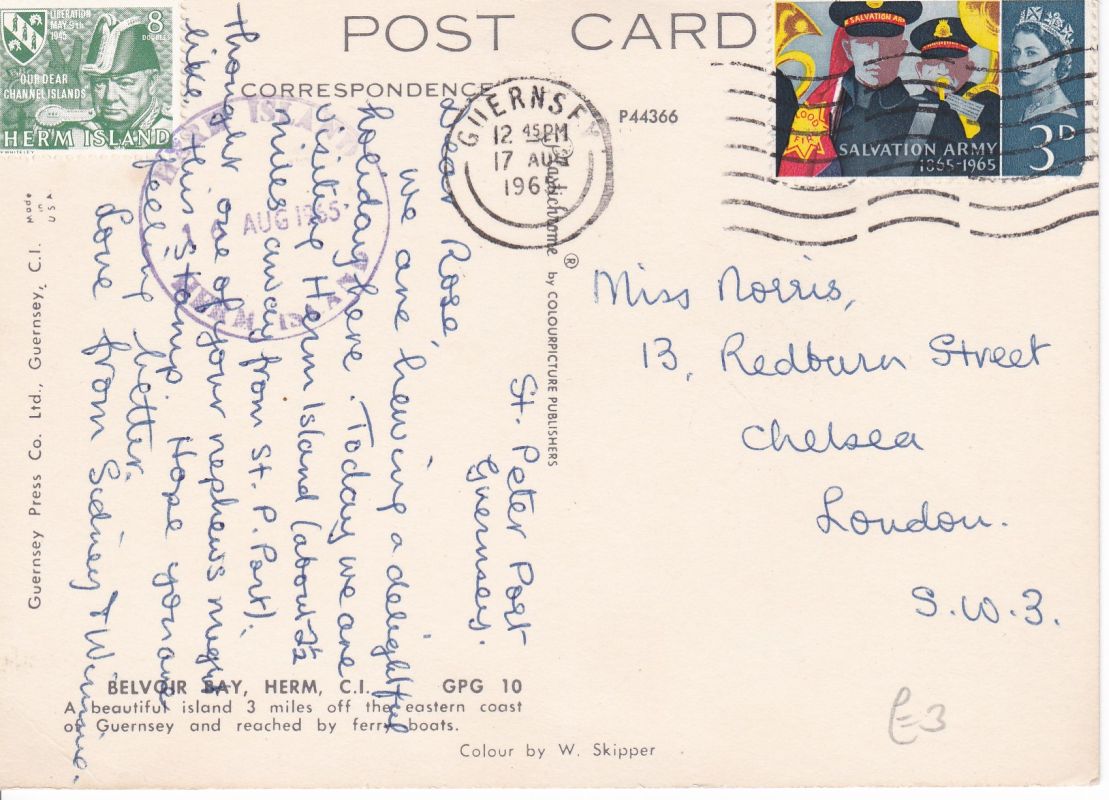 LIBERATION
MAY 9TH
1945
8
DOUBLES
OUR DEAR
CHANNEL ISLANDS
HERM ISLAND
V WHITELEY
POST CARD
CORRESPONDENCE
P44366
GUERNSEY
12 45PM
17 AUG
1965
SALVATION ARMY
SALVATION ARMY
1865-1965
3D
BLOOD
FIRE
HERM ISLAND
AUG 1965
HERM ISLAND
St. Peter Port
Guernsey.
Dear Rose,
We are having a delightful
holiday here. Today we are
visiting Herm Island (about 2½
miles away from St. P. Port).
Thought one of your nephews might
like this Stamp. Hope you are
feeling better.
Love from Sidney & Winnie.
Miss Norris,
13, Redburn Street
Chelsea
London.
S.W.3.
Plastichrome ® by COLOURPICTURE PUBLISHERS
Made
in
USA
Guernsey Press Co. Ltd., Guernsey, C.I.
BELVOIR BAY, HERM, C.I. GPG 10
A beautiful island 3 miles off the eastern coast
of Guernsey and reached by ferry boats.
Colour by W. Skipper
£3